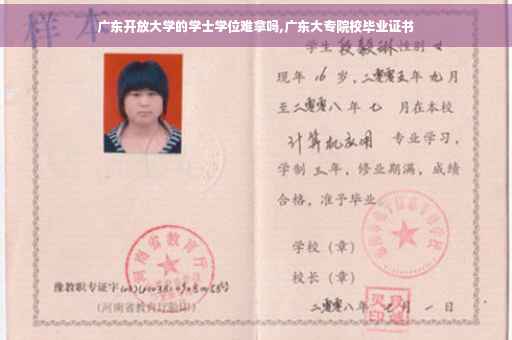 广东开放大学的学士学位难拿吗,广东大专院校毕业证书
样本
学生 段毅琳 性别 女
现年 16 岁，二零零五年 九 月
至二零零八年 七 月在本校
计算机应用 专业学习，
学制 三 年，修业期满，成绩
合格，准予毕业
学校（章）
校长（章）
豫教职专证字
(河南省教育厅验印)
二零零八年 七 月 一 日
河南省教育厅